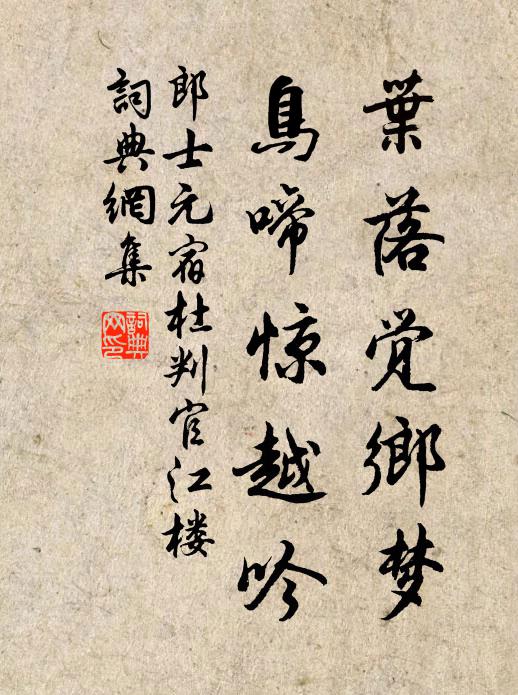 葉落觉鄉梦
鳥啼惊越吟
郎士元宿杜判官江楼
詞典網集
詞典网印